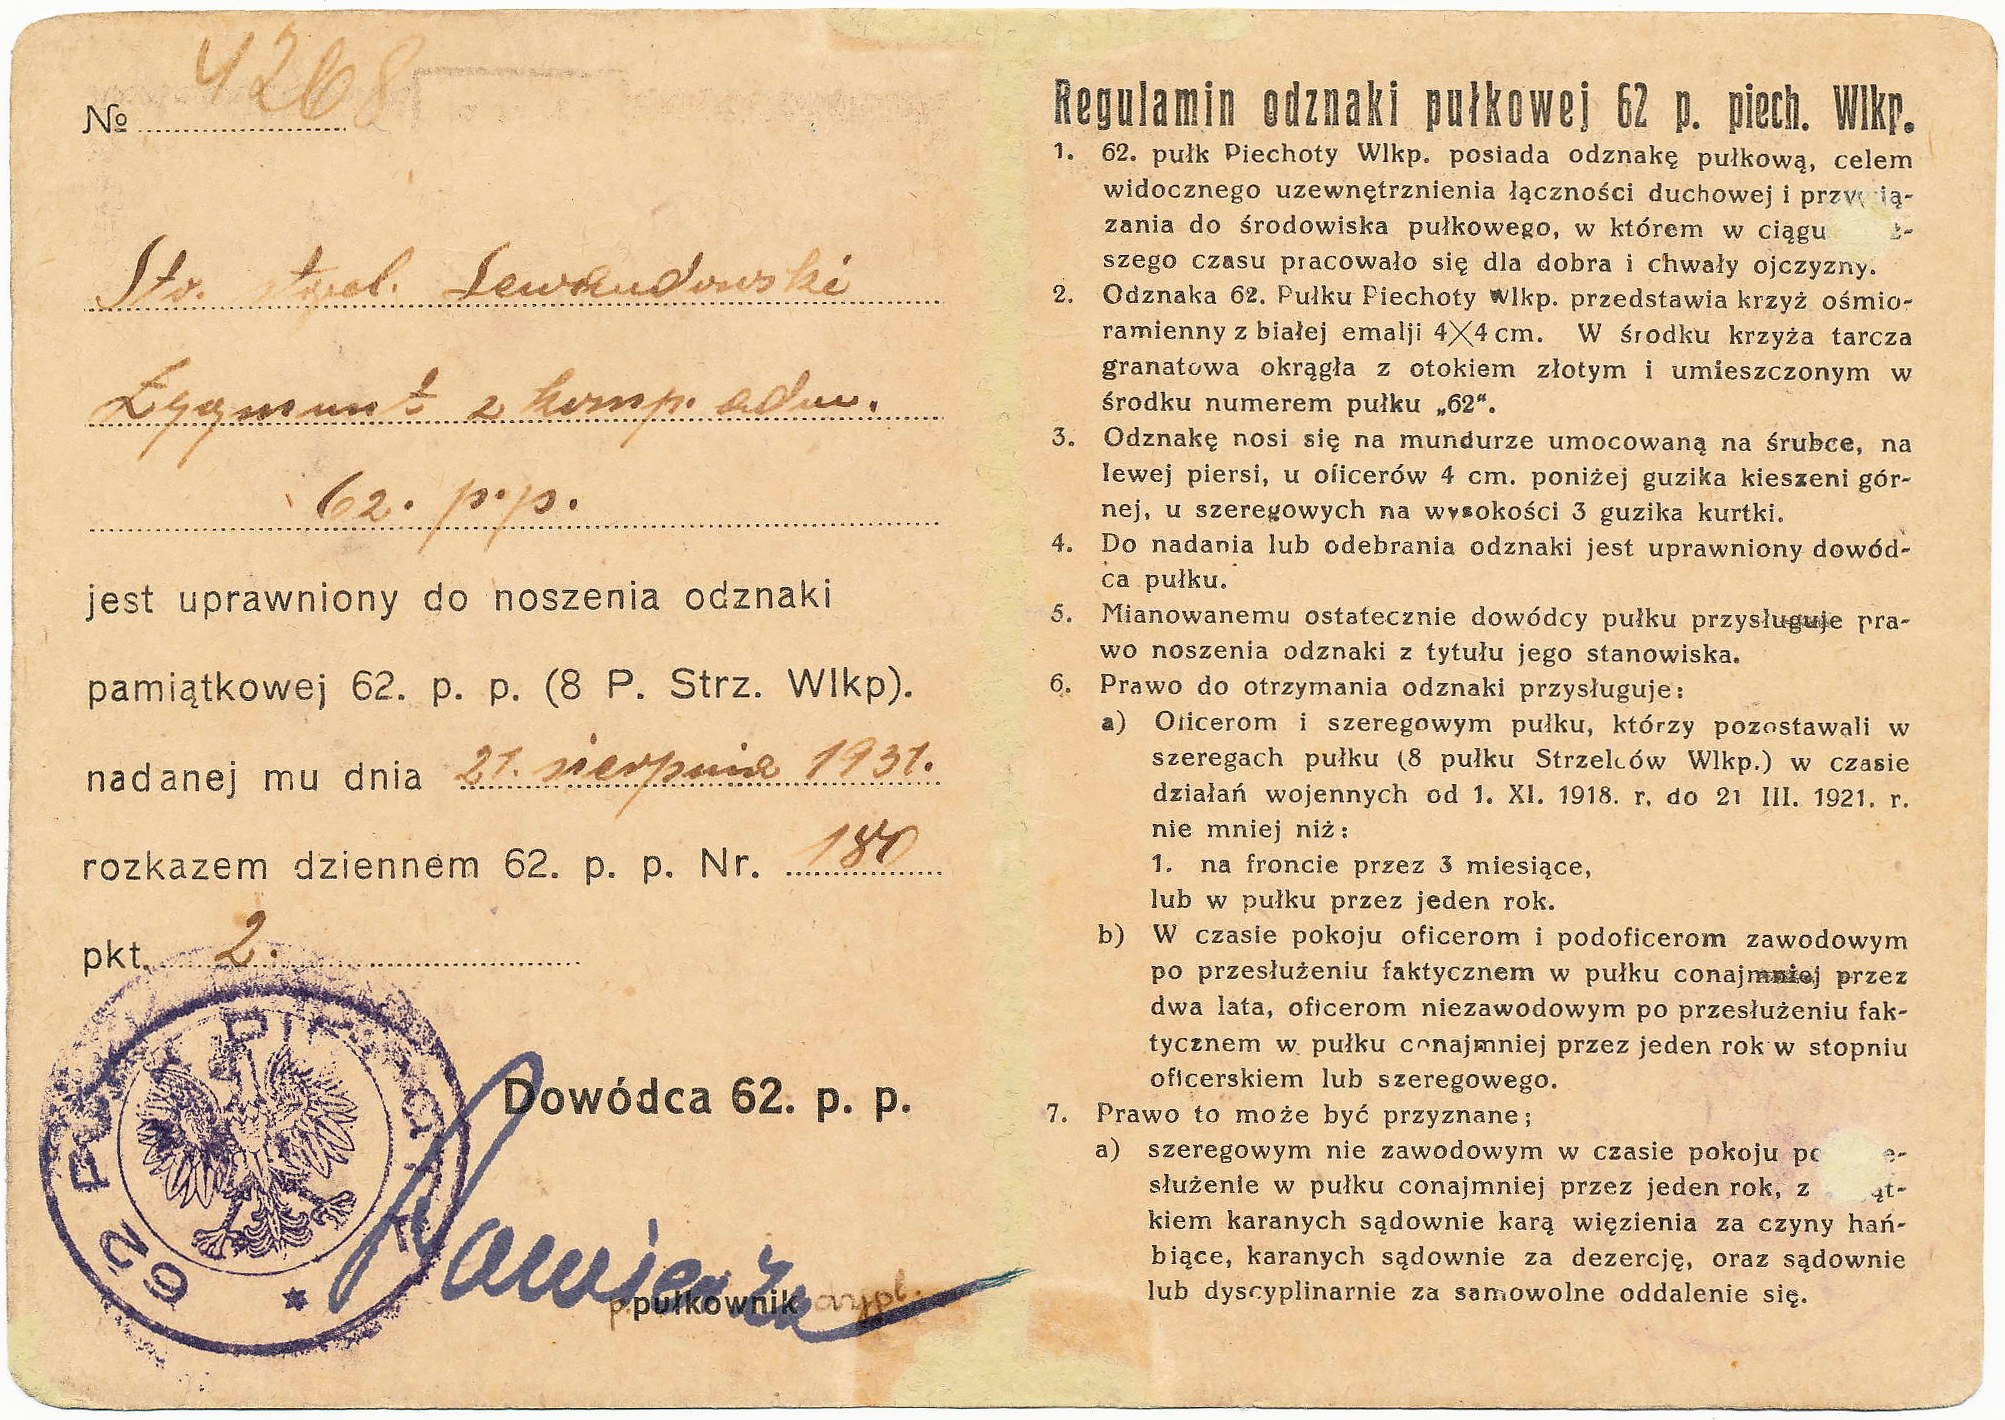 No 4268
St. strzel. Lewandowski
Zygmunt z komp. adm.
62. p.p.
jest uprawniony do noszenia odznaki
pamiątkowej 62. p. p. (8 P. Strz. Wlkp).
nadanej mu dnia 21. sierpnia 1931.
rozkazem dziennem 62. p. p. Nr. 180
pkt. 2.
Dowódca 62. p. p.
pułkownik
62 PUŁK PIECHOTY
Regulamin odznaki pułkowej 62 p. piech. Wlkp.
1. 62. pułk Piechoty Wlkp. posiada odznakę pułkową, celem
widocznego uzewnętrznienia łączności duchowej i przywią-
zania do środowiska pułkowego, w którem w ciągu
szego czasu pracowało się dla dobra i chwały ojczyzny.
2. Odznaka 62. Pułku Piechoty Wlkp. przedstawia krzyż ośmio-
ramienny z białej emalji 4X4 cm. W środku krzyża tarcza
granatowa okrągła z otokiem złotym i umieszczonym w
środku numerem pułku „62“.
3. Odznakę nosi się na mundurze umocowaną na śrubce, na
lewej piersi, u oficerów 4 cm. poniżej guzika kieszeni gór-
nej, u szeregowych na wysokości 3 guzika kurtki.
4. Do nadania lub odebrania odznaki jest uprawniony dowód-
ca pułku.
5. Mianowanemu ostatecznie dowódcy pułku przysługuje pra-
wo noszenia odznaki z tytułu jego stanowiska.
6. Prawo do otrzymania odznaki przysługuje:
a) Oficerom i szeregowym pułku, którzy pozostawali w
szeregach pułku (8 pułku Strzelców Wlkp.) w czasie
działań wojennych od 1. XI. 1918. r. do 21 III. 1921. r.
nie mniej niż:
1. na froncie przez 3 miesiące,
lub w pułku przez jeden rok.
b) W czasie pokoju oficerom i podoficerom zawodowym
po przesłużeniu faktycznem w pułku conajmniej przez
dwa lata, oficerom niezawodowym po przesłużeniu fak-
tycznem w pułku conajmniej przez jeden rok w stopniu
oficerskiem lub szeregowego.
7. Prawo to może być przyznane;
a) szeregowym nie zawodowym w czasie pokoju
służenie w pułku conajmniej przez jeden rok, z
kiem karanych sądownie karą więzienia za czyny hań-
biące, karanych sądownie za dezercję, oraz sądownie
lub dyscyplinarnie za samowolne oddalenie się.